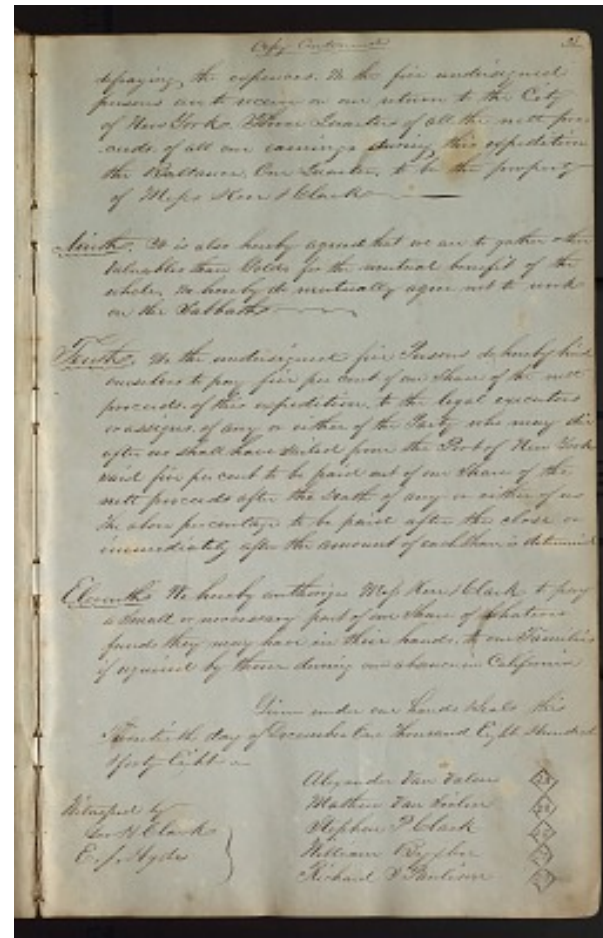 Copy Continued
defraying the expences. We the five undersigned
persons are to receive on our return to the City
of New York. Three Quarters of all the nett proc
eeds of all our earnings during this expedition
the Ballance, One Quarter, to be the property
of Mess Kerr & Clark
Ninth. It is also hereby agreed that we are to gather other
Valuables than Golds for the mutual benefit of the
whole, We hereby do mutually agree not to work
on the Sabbath
Tenth. We the undersigned five Persons do hereby bind
ourselves to pay five per cent of our Share of the nett
proceeds of this expedition, to the legal executors
or assigns of any or either of the Party who may die
after we shall have sailed from the Port of New York
said five per cent to be paid out of our Share of the
nett proceeds after the death of any or either of us
the above percentage to be paid after the close or
immediately after the amount of each share is determined
Eleventh. We hereby authorize Mess Kerr & Clark to pay
a small or necessary part of our Share of whatever
funds they may have in their hands, to our Families
if required by them during our absence in California
Given under our hands & seals this
Twentieth day of December One Thousand Eight Hundred
& forty Eight
Alexander Van Valen
Witnessed by
Mathew Van
Geo H Clark
Stephen P Clark
E. J. Hyde
William
Richard D Paulison